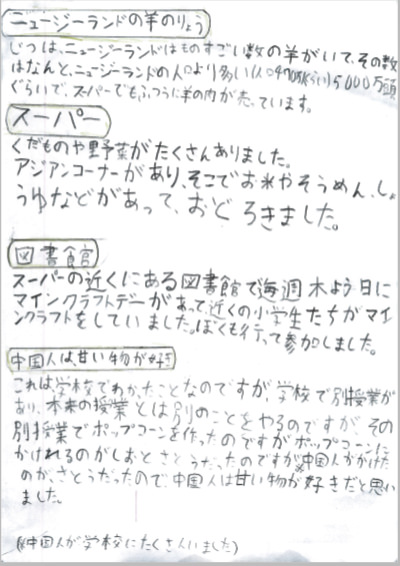 ニュージーランドの羊のりょう
じつは、ニュージーランドはものすごい数の羊がいて、その数
はなんと、ニュージーランドの人口より多い(人口470万人くらい)5000万頭
ぐらいで、スーパーでもふつうに羊の肉が売っています。
スーパー
くだものや野菜がたくさんありました。
アジアンコーナーがあり、そこでお米やそうめん、しょ
うゆなどがあって、おどろきました。
図書館
スーパーの近くにある図書館で毎週木よう日に
マインクラフトデーがあって近くの小学生たちがマイ
ンクラフトをしていました。ぼくも行って参加しました。
中国人は、甘い物が好き
これは、学校でわかったことなのですが、学校で別授業が
あり、本来の授業とは別のことをやるのですが、その
別授業でポップコーンを作ったのですがポップコーンに
かけれるのがしおとさとうだったのですが※中国人がかけた
のが、さとうだったので、中国人は甘い物が好きだと思い
ました。
(※中国人が学校にたくさんいました)